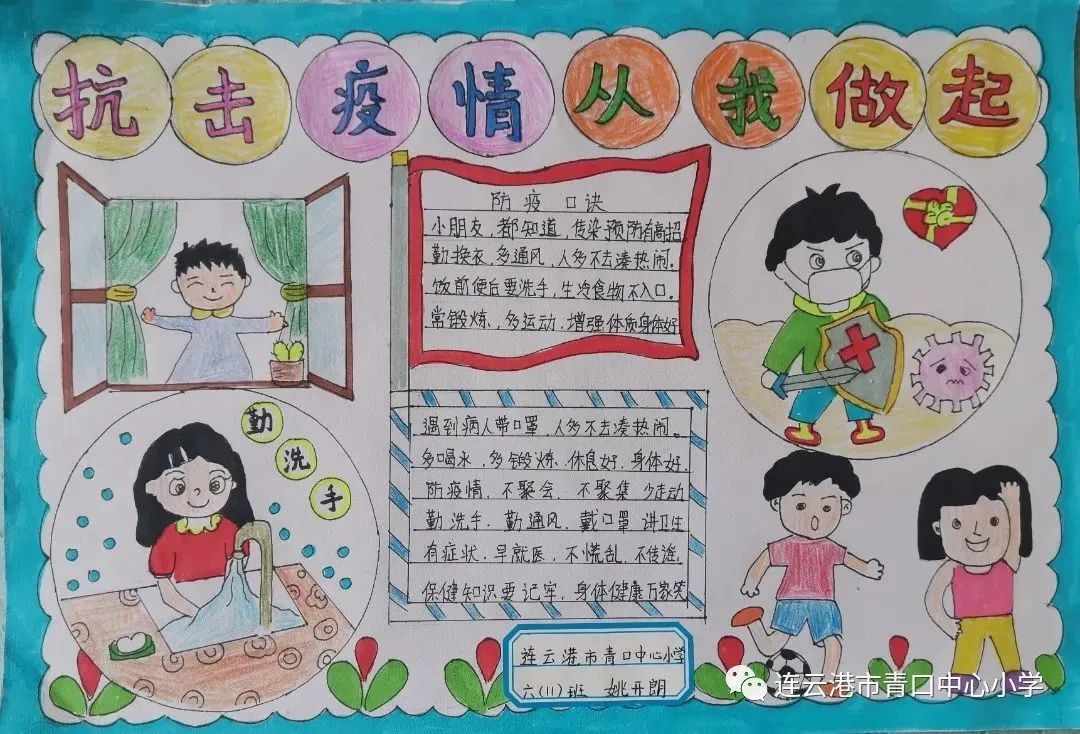 抗击疫情从我做起
防疫口诀
小朋友,都知道,传染预防有高招
勤换衣,多通风,人多不去凑热闹。
饭前便后要洗手,生冷食物不入口。
常锻炼,多运动,增强体质身体好
勤
洗
手
遇到病人带口罩,人多不去凑热闹。
多喝水,多锻炼.休息好.身体好.
防疫情.不聚会,不聚集 少走动
勤洗手.勤通风.戴口罩 讲卫生
有症状.早就医,不慌乱.不传谣.
保健知识要记牢.身体健康万家笑
连云港市青口中心小学
六(11)班 姚开朗
连云港市青口中心小学